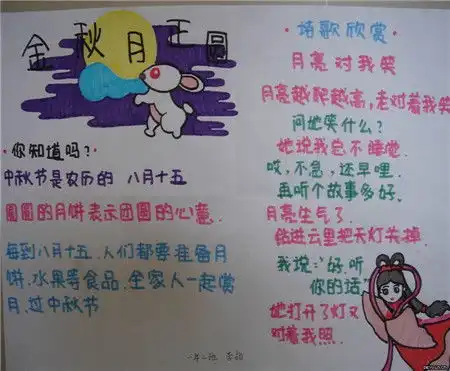 金秋月正圆
·你知道吗?·
中秋节是农历的 八月十五
圆圆的月饼表示团圆的心意.
每到八月十五.人们都要准备月
饼.水果等食品.全家人一起赏
月.过中秋节
·诗歌欣赏·
月亮对我笑
月亮越爬越高,老对着我笑
问她笑什么?
她说我总不睡觉.
哎,不急,还早哩.
再听个故事多好.
月亮生气了.
钻进云里把天灯关掉.
我说:"好.听
你的话"
她打开了灯又
对着我照.
一年一班